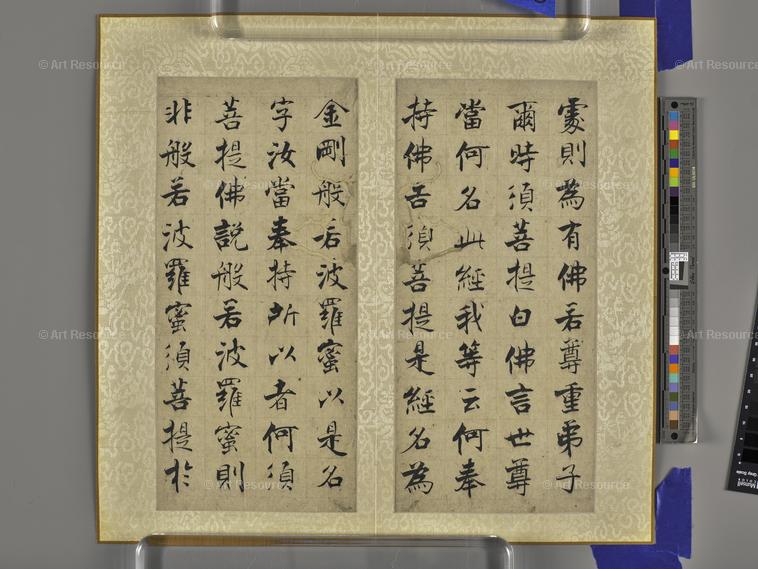 處則為有佛若尊重弟子
爾時須菩提白佛言世尊
當何名此經我等云何奉
持佛告須菩提是經名為
金剛般若波羅蜜以是名
字汝當奉持所以者何須
菩提佛說般若波羅蜜則
非般若波羅蜜須菩提於
© Art Resource
© Art Resource
© Art Resource
© Art Resource
© Art Resource
© Art Resource
© Art Resource
© Art Resource